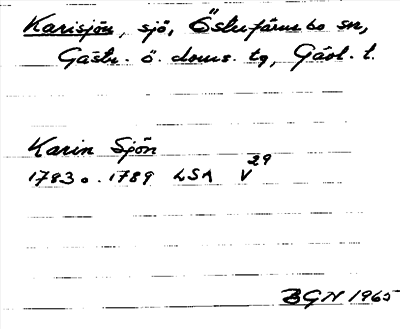 Karisjön, sjö, Östufärnebo sn,
Gästr. ö. doms. tg, Gävl. l.
Karin Sjön
1783 o. 1789 LSA V29
BGN 1965